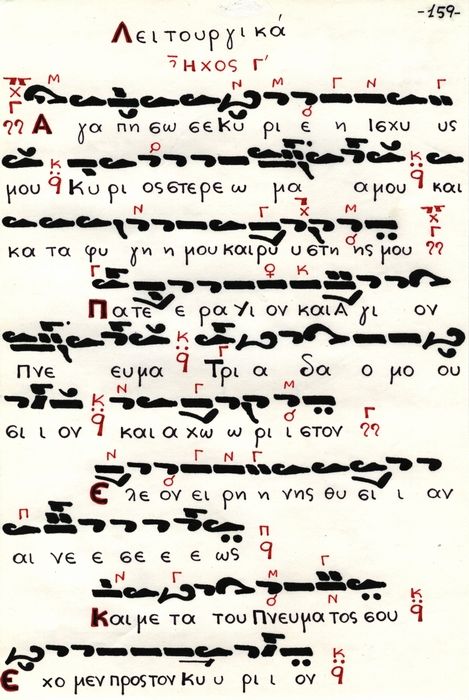 -159-
Λειτουργικά
Ἦχος Γ΄
Α γα πη σω σε Κυ ρι ε η Ισχυ υς
μου Κυ ρι ος στερε ω μα α μου και
κα τα φυ γη η μου και ρυ υ στη ης μου
Πατε ε ρα Υι ον και Α γι ον
Πνε ευμα Τρι α δα ο μο ού
σι ι ον και α χω ω ρι ι στον
Ε λε ον ει ρη η νης θυ σι ι αν
αι νε ε σε ε ε ως
Και με τα του Πνευμα τος σου
Ε χο μεν προς τον Κυ υ ρι ι ον